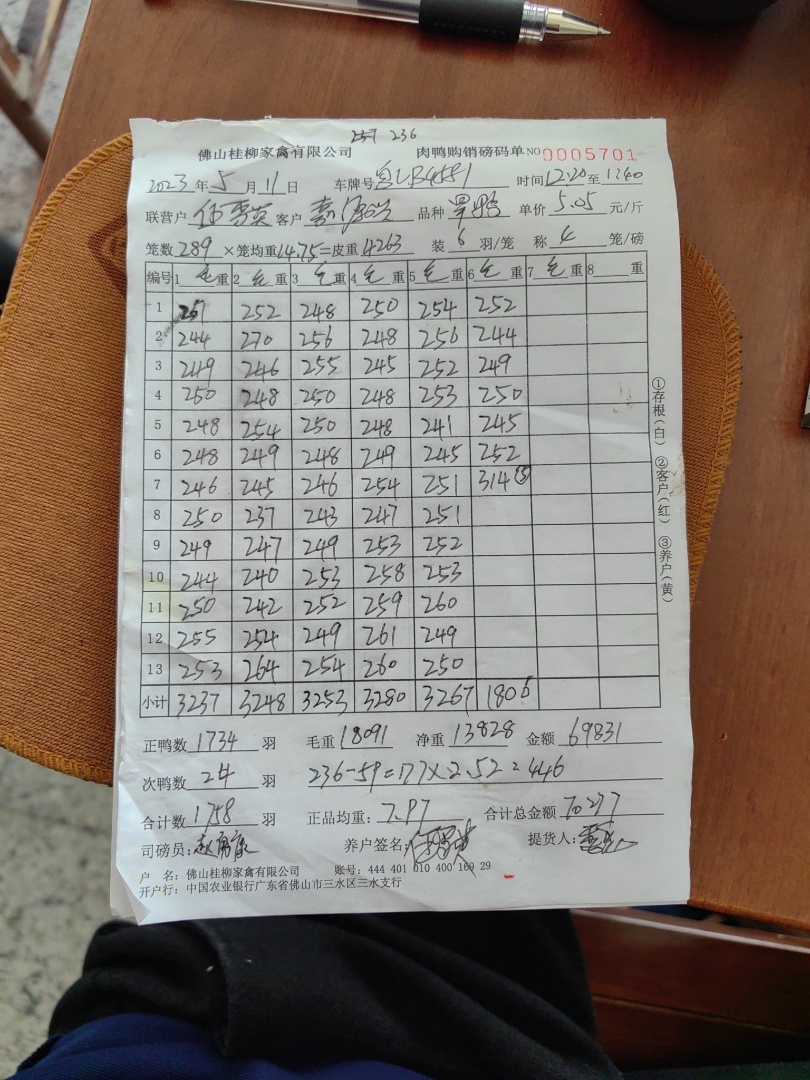 251 236
佛山桂柳家禽有限公司 肉鸭购销磅码单 NO 0005701
2023年5月11日 车牌号 时间12:20至1340
联营户 客户 品种 单价5.05元/斤
笼数289×笼均重14.75=皮重4263 装6羽/笼 称4笼/磅
编号 1 毛重 2 毛重 3 毛重 4 毛重 5 毛重 6 毛重 7 毛重 8 重
1 251 252 248 250 254 252
2 244 270 256 248 256 244
3 249 246 255 245 252 249
4 250 248 250 248 253 250
5 248 254 250 248 241 245
6 248 249 248 249 245 252
7 246 245 246 254 251 314⑤
8 250 237 243 247 251
9 249 247 249 253 252
10 244 240 253 258 253
11 250 242 252 259 260
12 255 254 249 261 249
13 253 264 254 260 250
小计 3237 3248 3253 3280 3267 1806
正鸭数1734羽 毛重18091 净重13828 金额69831
次鸭数24羽 236-59=177×2.52=446
合计数1758羽 正品均重:7.97 合计总金额70277
司磅员: 养户签名: 提货人:
户 名:佛山桂柳家禽有限公司 账号:444 401 010 400 169 29
开户行:中国农业银行广东省佛山市三水区三水支行
①存根(白) ②客户(红) ③养户(黄)